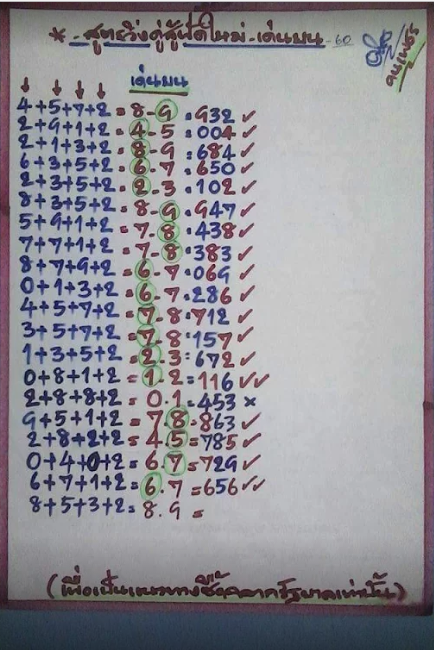 * - สูตรวิ่งคู่สู้ฟัดใหม่ - เด่นบน - 60
คนเพชร
เด่นบน
4+5+7+2 = 8-9 = 932 ✓
2+9+1+2 = 4-5 = 004 ✓
2+1+3+2 = 8-9 = 684 ✓
6+3+5+2 = 6-7 = 650 ✓
2+3+5+2 = 2-3 = 102 ✓
8+3+5+2 = 8-9 = 947 ✓
5+9+1+2 = 7-8 = 438 ✓
7+7+1+2 = 7-8 = 383 ✓
8+7+9+2 = 6-7 = 069 ✓
0+1+3+2 = 6-7 = 286 ✓
4+5+7+2 = 7-8 = 712 ✓
3+5+7+2 = 7-8 = 157 ✓
1+3+5+2 = 2-3 = 672 ✓
0+8+1+2 = 1-2 = 116 ✓✓
2+8+8+2 = 0.1 = 453 ×
9+5+1+2 = 7.8 = 863 ✓
2+8+2+2 = 4.5 = 785 ✓
0+4+0+2 = 6.7 = 729 ✓
6+7+1+2 = 6.7 = 656 ✓✓
8+5+3+2 = 8.9 =
(เพื่อเป็นแนวทางซื้อสลากรัฐบาลเท่านั้น)